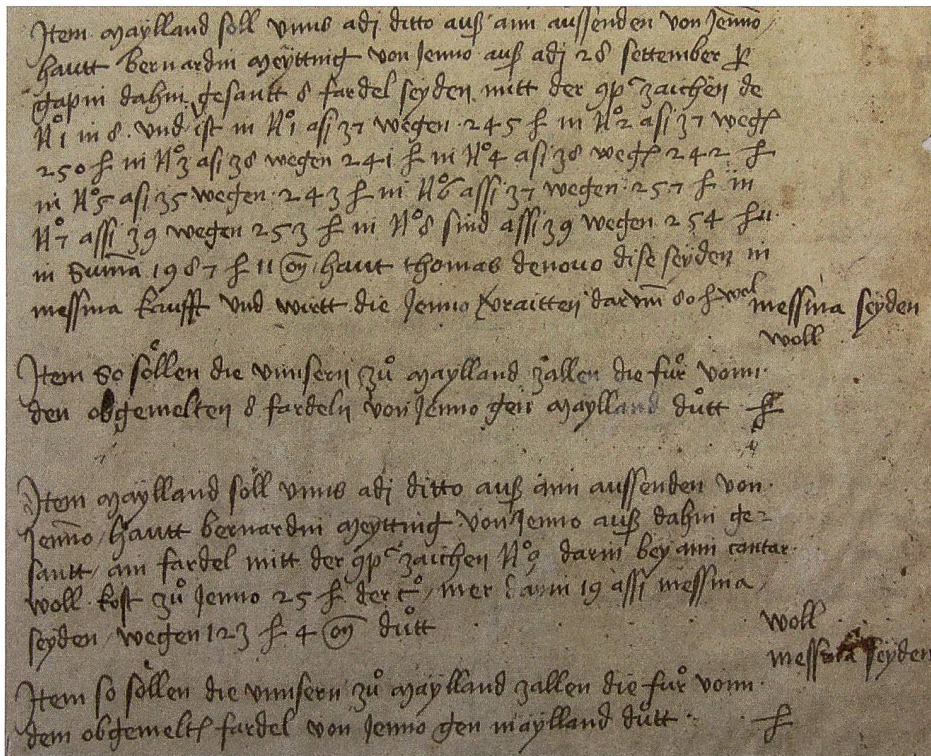 Jtem maylland soll vnns adj ditto auß ainn aussenden von Jenno /
hautt bernardin meytting von Jenno auß adj 28 settember
gapin dahin gesantt 8 fardel seyden mitt der zaichen de
N° 1 in 8. vnd ist in N° 1 asi 37 wegen 245 ℔ in N° 2 asi 37 weg
250 ℔ in N° 3 asi 38 wegen 241 ℔ in N° 4 asi 38 weg 242 ℔
in N° 5 asi 35 wegen 243 ℔ in N° 6 assi 37 wegen 257 ℔ in
N° 7 assi 39 wegen 253 ℔ in N° 8 sind assi 39 wegen 254 ℔
in Suma 1987 ℔ 11 hautt thomas denovo dise seyden in
messina kaufft vnd wirtt die Jenno darum 80 ℔ wol
messina seyden
woll
Jtem so söllen die vnnsern zů maylland zallen die fůr vonn
den obgemelten 8 fardeln von Jenno gen maylland důtt ℔
Jtem maylland soll vnns adj ditto auß ainn aussenden von
Jenno / hautt bernardin meytting von Jenno auß dahin ge-
santt ain fardel mitt der zaichen N° 9 darin bey ainn cantar
woll kost zů Jenno 25 ℔ der c° / mer darin 19 assi messina /
seyden / wegen 123 ℔ 4 důtt
woll
messina seyden
Jtem so söllen die vnnsern zů maylland zallen die fůr vonn
dem obgemelt fardel von Jenno gen maylland důtt ℔